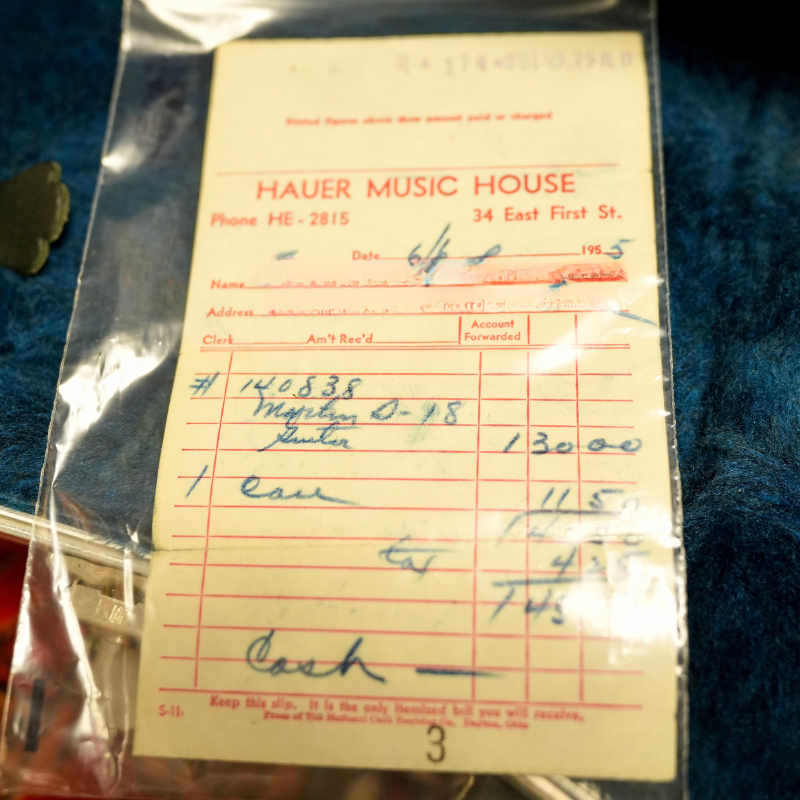 Printed figures above show amount paid or charged
HAUER MUSIC HOUSE
Phone HE - 2815 34 East First St.
Date 6/ 8 195 5
Name
Address
Clerk Am't Rec'd Account Forwarded
# 140838
Martin D-18
Guitar 130 00
1 Case 11 50
tax 4 25
145
Cash —
S-11: Keep this slip. It is the only itemized bill you will receive,
Press of The National Cash Register Co. Dayton, Ohio
3